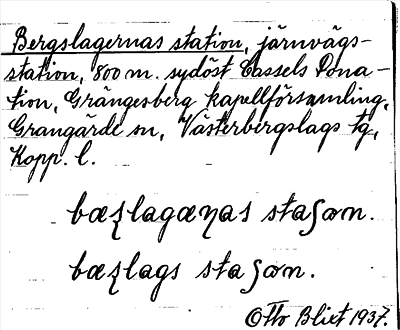 Bergslagernas station, järnvägs-
station, 800 m. sydöst Cassels Dona-
tion, Grängesberg kapellförsamling,
Grangärde sn, Västerbergslags tg,
Kopp. l.
stas∫ɷn.
Otto Blixt 1937.